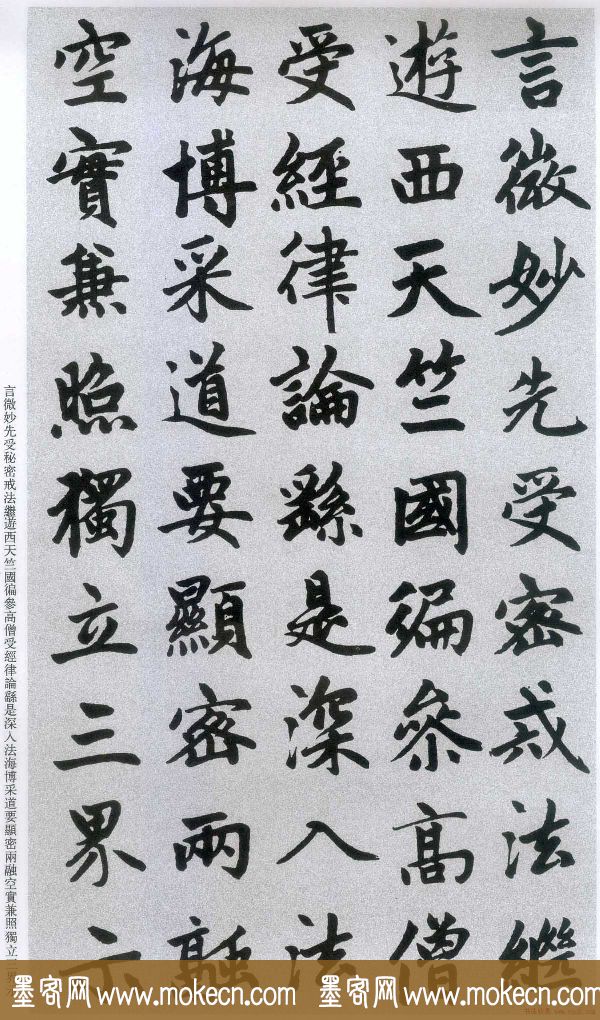 言微妙先受密戒法繼
遊西天竺國徧參高僧
受經律論繇是深入法
海博采道要顯密兩融
空實兼照獨立三界示
言微妙先受秘密戒法繼遊西天竺國徧參高僧受經律論繇是深入法海博采道要顯密兩融空實兼照獨立三界
墨客网 www.mokecn.com 墨客网 www.mokecn.com